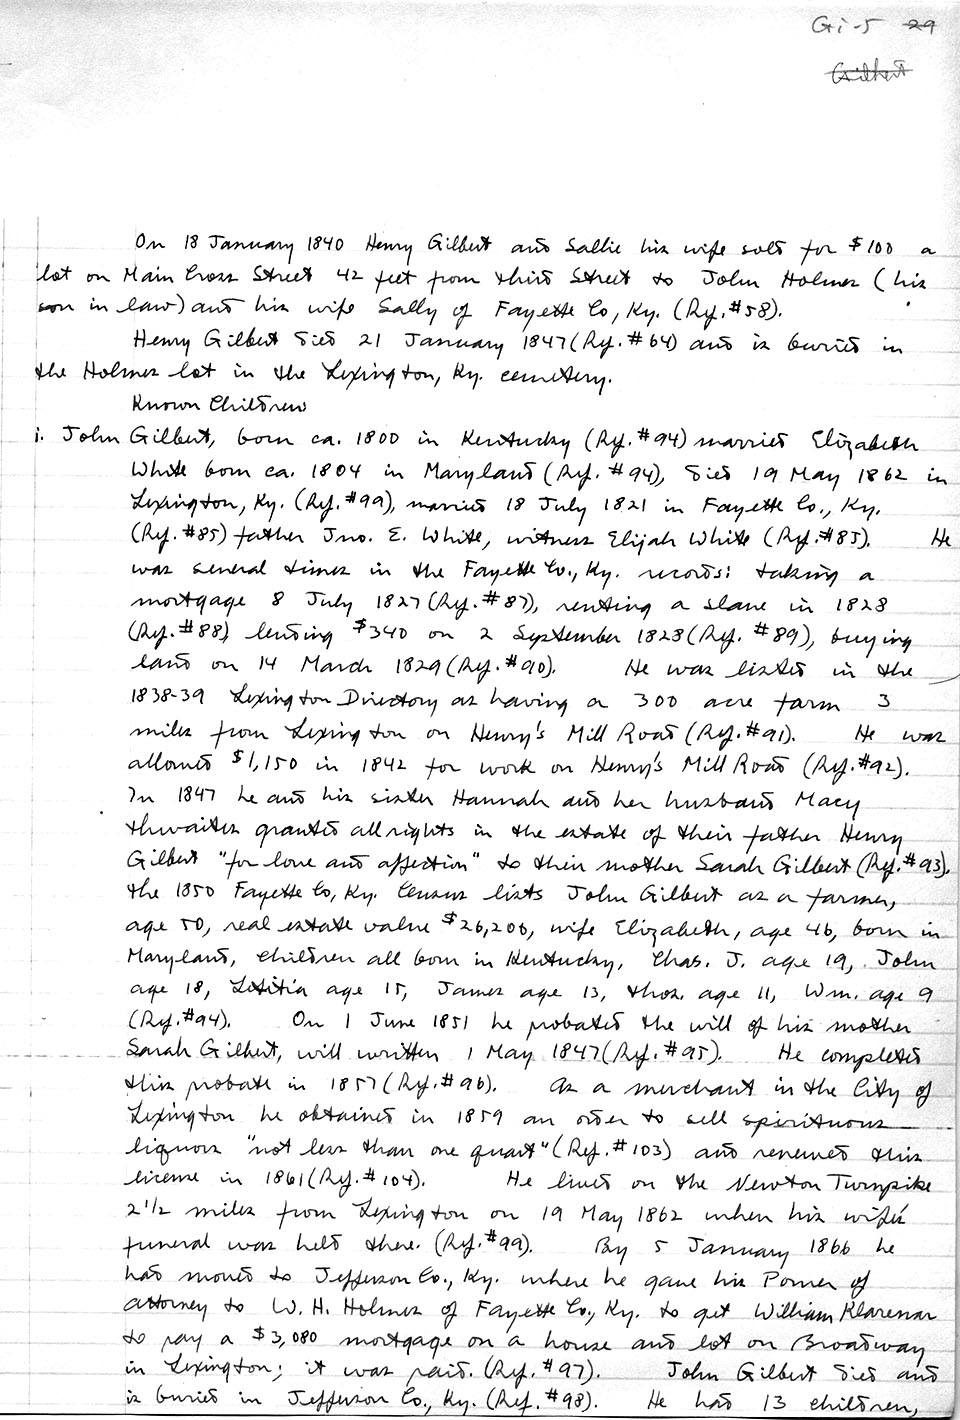 Gi-5 29
Gilbert
On 18 January 1840 Henry Gilbert and Sallie his wife sold for $100 a
lot on Main Cross Street 42 feet from third Street to John Holmes (his
son in law) and his wife Sally of Fayette Co, Ky. (Ref. #58).
Henry Gilbert died 21 January 1847 (Ref. #64) and is buried in
the Holmes lot in the Lexington, Ky. cemetery.
Known Children
i. John Gilbert, born ca. 1800 in Kentucky (Ref. #94) married Elizabeth
White born ca. 1804 in Maryland (Ref. #94), died 19 May 1862 in
Lexington, Ky. (Ref. #99), married 18 July 1821 in Fayette Co., Ky.
(Ref. #85) father Jno. E. White, witness Elijah White (Ref. #85). He
was several times in the Fayette Co., Ky. records: taking a
mortgage 8 July 1827 (Ref. #87), renting a slave in 1828
(Ref. #88) lending $340 on 2 September 1828 (Ref. #89), buying
land on 14 March 1829 (Ref. #90). He was listed in the
1838-39 Lexington Directory as having a 300 acre farm 3
miles from Lexington on Henry's Mill Road (Ref. #91). He was
allowed $1,150 in 1842 for work on Henry's Mill Road (Ref. #92).
In 1847 he and his sister Hannah and her husband Macy
thwaites granted all rights in the estate of their father Henry
Gilbert "for love and affection" to their mother Sarah Gilbert (Ref. #93).
the 1850 Fayette Co, Ky. Census lists John Gilbert as a farmer,
age 50, real estate value $26,200, wife Elizabeth, age 46, born in
Maryland, children all born in Kentucky, Chas. J. age 19, John
age 18, Letitia age 15, James age 13, thos. age 11, Wm. age 9
(Ref. #94). On 1 June 1851 he probated the will of his mother
Sarah Gilbert, will written 1 May 1847 (Ref. #95). He completed
this probate in 1857 (Ref. #96). As a merchant in the City of
Lexington he obtained in 1859 an order to sell spirituous
liquors "not less than one quart" (Ref. #103) and renewed this
license in 1861 (Ref. #104). He lived on the Newton Turnpike
2 1/2 miles from Lexington on 19 May 1862 when his wife's
funeral was held there. (Ref. #99). By 5 January 1866 he
had moved to Jefferson Co., Ky. where he gave his Power of
attorney to W. H. Holmes of Fayette Co., Ky. to get William Klarenar
to pay a $3,080 mortgage on a house and lot on Broadway
in Lexington; it was paid. (Ref. #97). John Gilbert died and
is buried in Jefferson Co., Ky. (Ref. #98). He had 13 children,